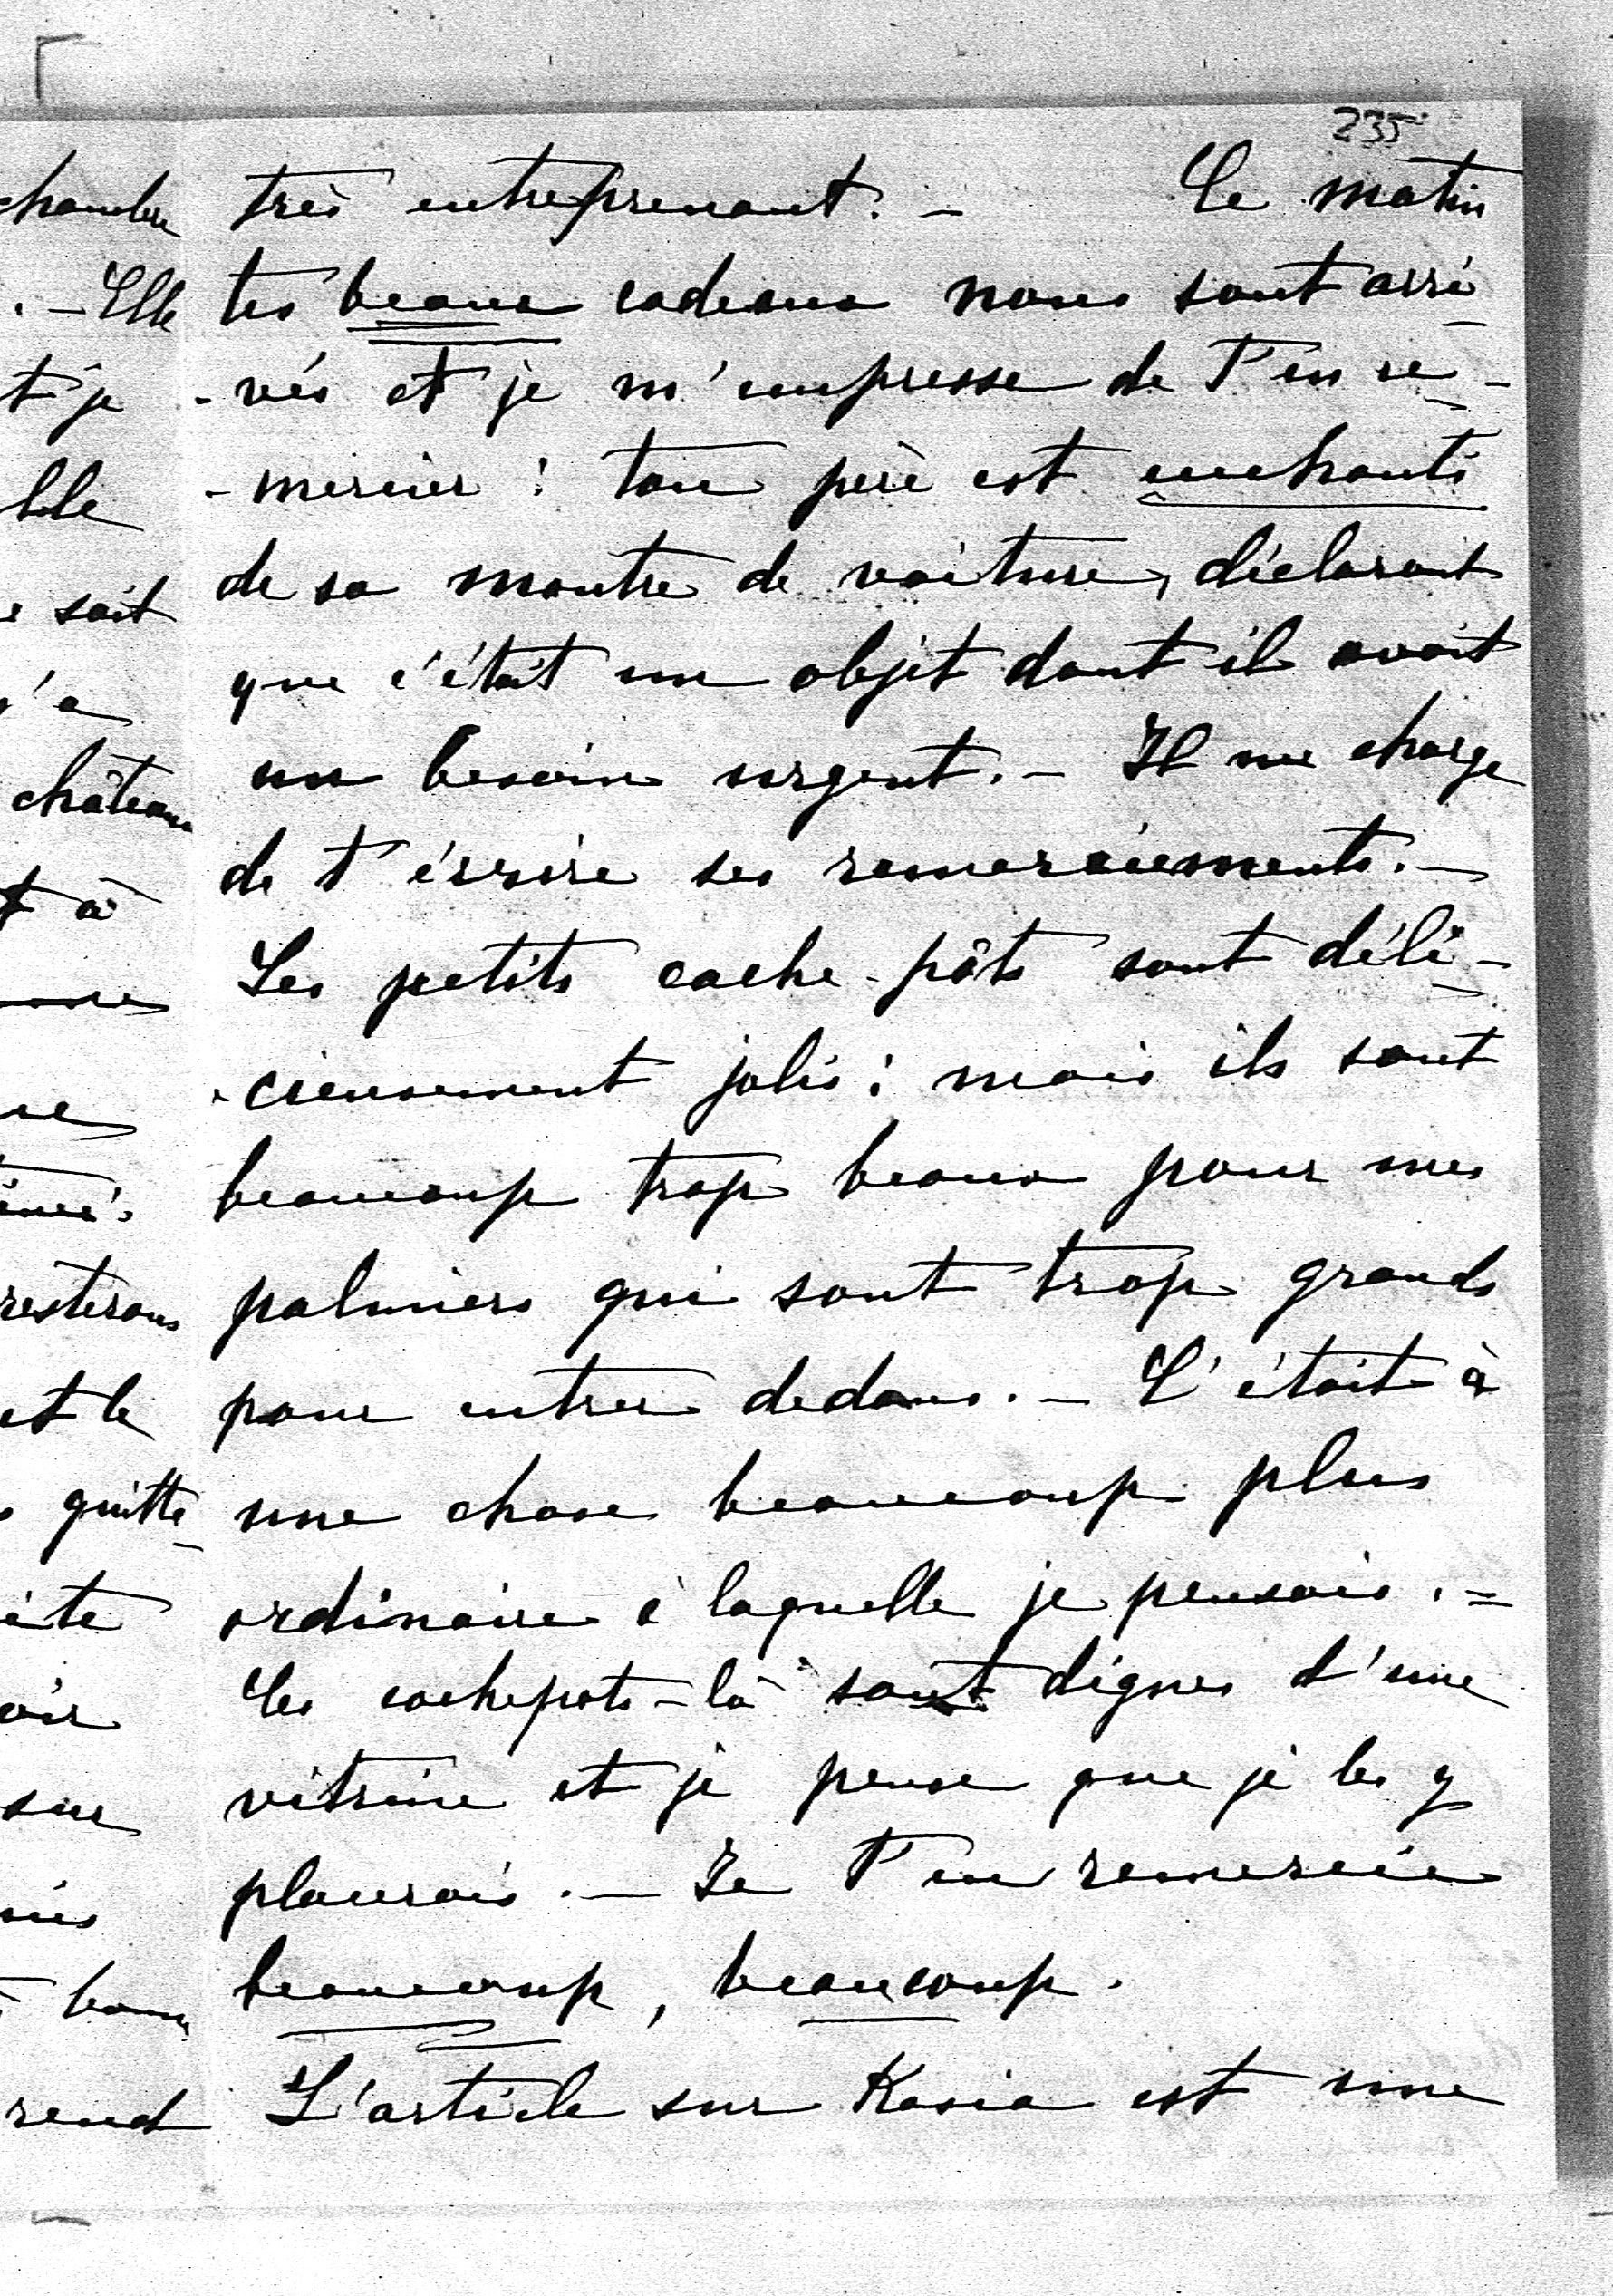 235
très entreprenant. — Ce matin
tes beaux cadeaux nous sont arri-
-vés et je m'empresse de t'en re-
-mercier : ton père est enchanté
de sa montre de voiture, déclarant
que c'était un objet dont il avait
un besoin urgent. — Il me charge
de t'écrire ses remerciements. —
Les petits cache-pôts sont déli-
-cieusement jolis : mais ils sont
beaucoup trop beaux pour mes
palmiers qui sont trop grands
pour entrer dedans. — C'était à
une chose beaucoup plus
ordinaire à laquelle je pensais. =
Ces cachepots-là sont dignes d'une
vitrine et je pense que je les y
placerais. — Je t'en remercie
beaucoup, beaucoup.
L'article sur Kasia est une
chambre
. — Elle
t je
elle
soit
château
t à
resterons
et le
quitte-
sur
rend